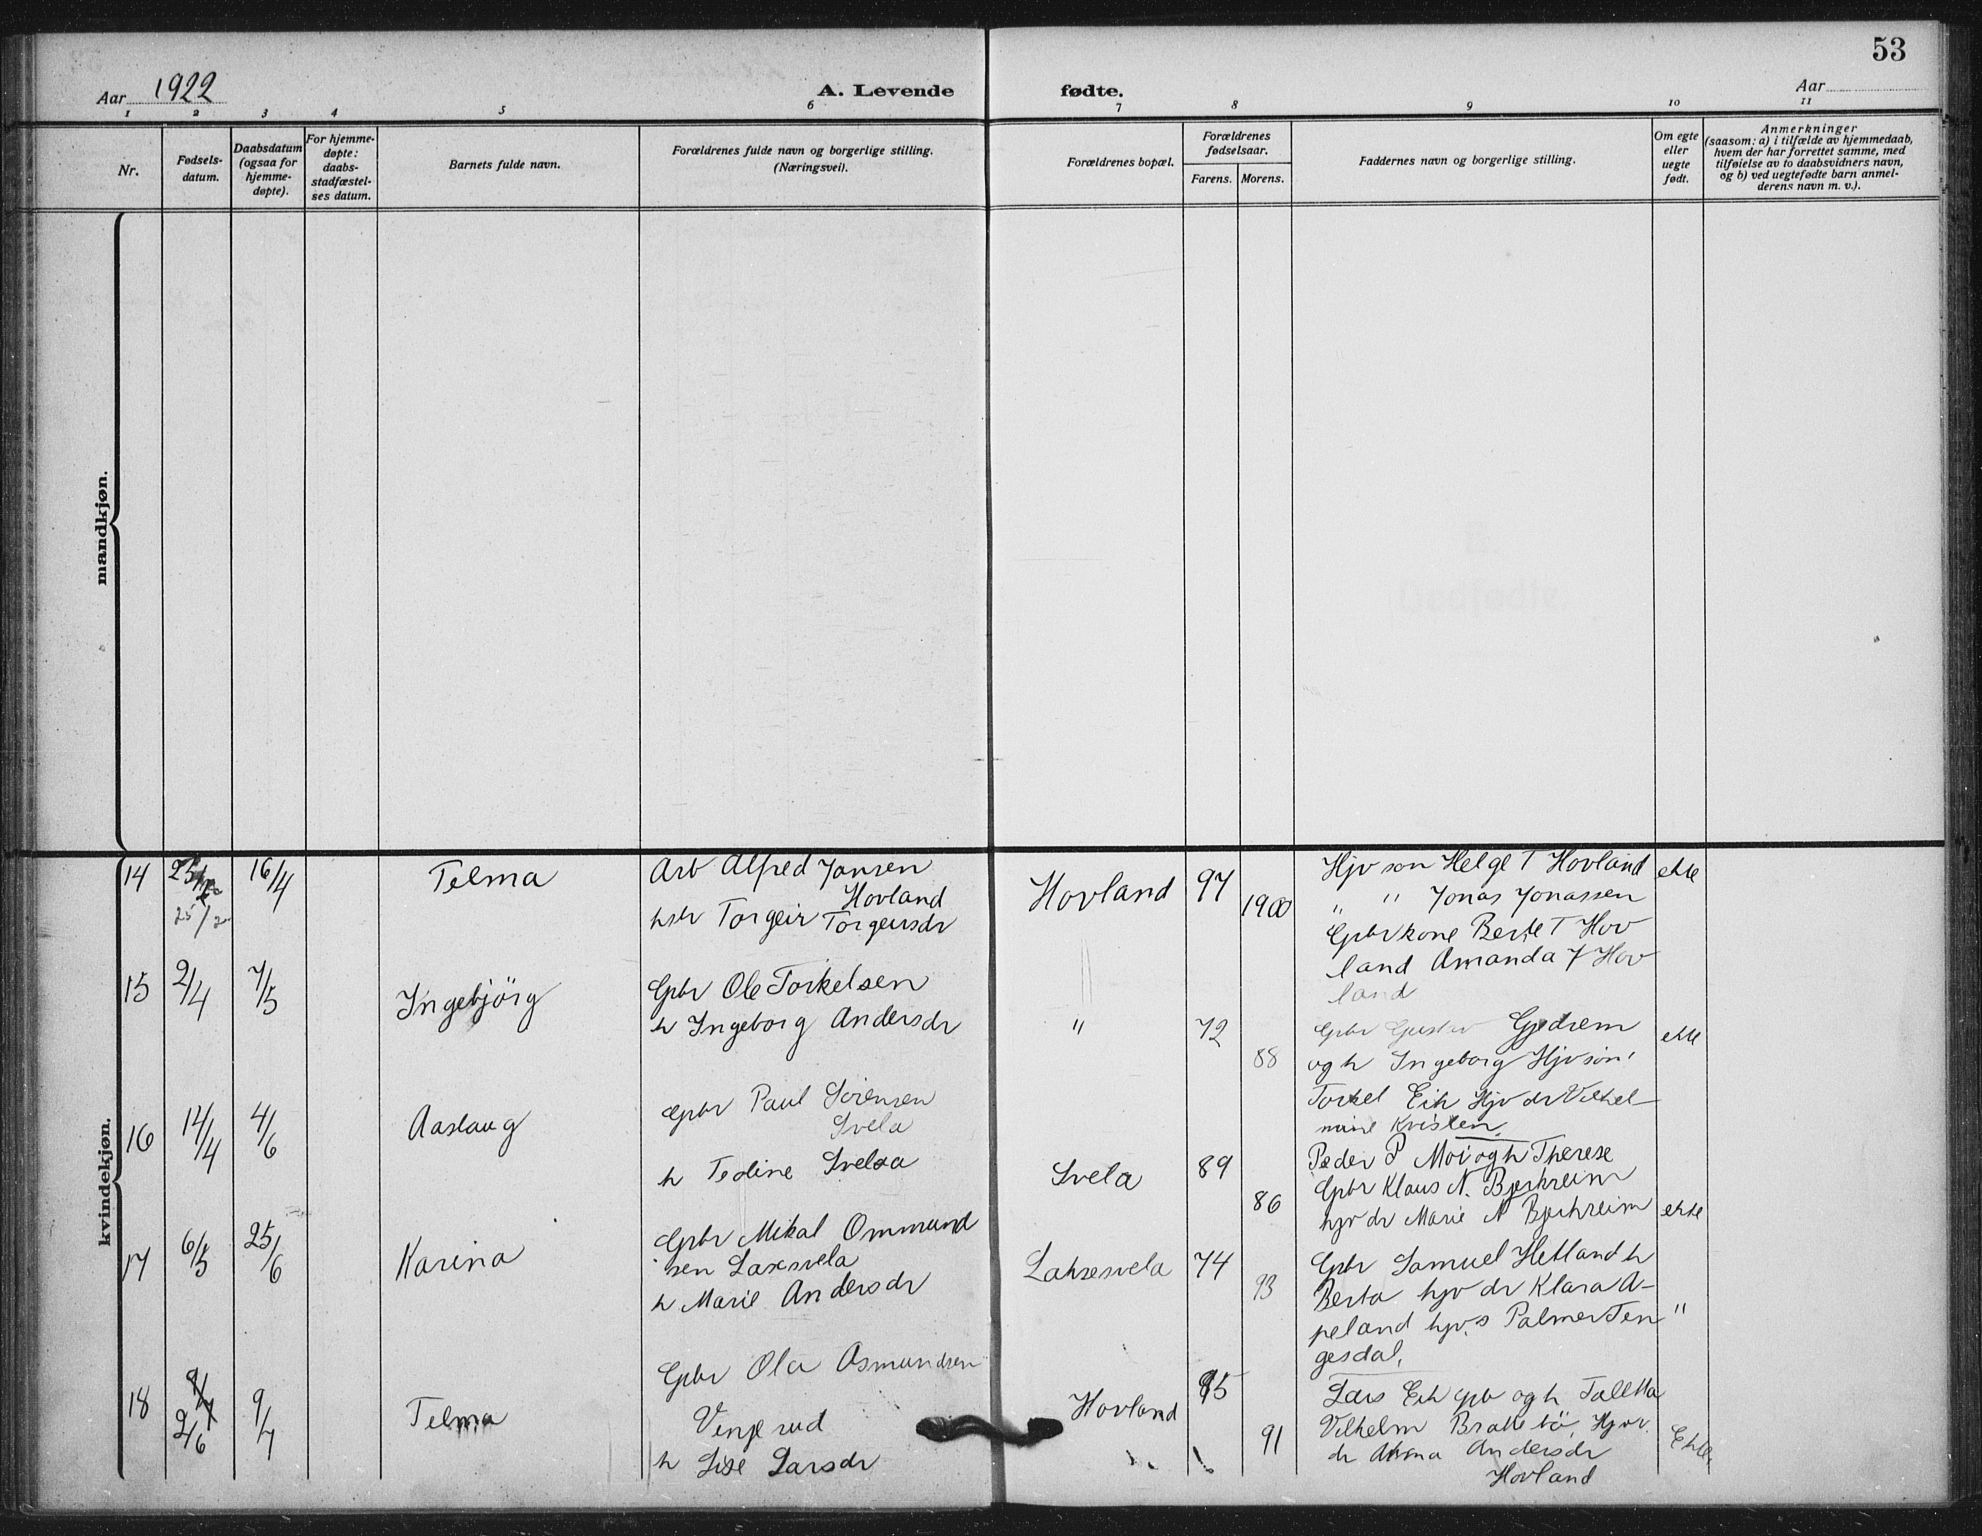 53
Aar 1922
A. Levende fødte.
Aar
1 2 3 4 5 6 7 8 9 10 11
Nr.
Fødsels-
datum.
Daabsdatum
(ogsaa for
hjemme-
døpte).
For hjemme-
døpte:
daabs-
stadfæstel-
ses datum.
Barnets fulde navn.
Forældrenes fulde navn og borgerlige stilling.
(Næringsvei).
Forældrenes bopæl.
Forældrenes
fødselsaar.
Farens. Morens.
Faddernes navn og borgerlige stilling.
Om egte
eller
uegte
født.
Anmerkninger
(saasom: a) i tilfælde av hjemmedaab,
hvem der har forrettet samme, med
tilføielse av to daabsvidners navn,
og b) ved uegtefødte barn anmel-
derens navn m. v.).
mandkjøn.
kvindekjøn.
14
25/2
16/4
Telma
Arb Alfred Jonsen
Hovland
hstr Torgeir Torgeirsdr
Hovland
97
1900
Hjv søn Helge T Hovland
" " Jonas Jonassen
Gpbr kone Berte T Hov
land Amanda T Hov
land
ekte
15
2/4
7/5
Ingebjörg
Gpbr Ole Torkelsen
h Ingeborg Andersdr
"
72
88
Gpbr Gustav Gjedrem
og h Ingeborg Hjv søn
Torkel Eik Hjv dr Vilhel-
mine Kvislen
ekte
16
12/4
4/6
Aaslaug
Gpbr Paul Sörensen
Svela
h Tedine Svelaa
Svela
89
86
Peder P Moi og h Therese
Gpbr Klaus N. Bjerkreim
hjv dr Marie N Bjerkreim
ekte
17
6/5
25/6
Karina
Gpbr Mikal Ommund
sen Laksesvela
h Marie Andersdr
Laksesvela
74
93
Gpbr Samuel Hetland h
Berta hjv dr Klara A-
peland hjv. s Palmer Ten
gesdal.
"
18
2/6
9/7
Telma
Gpbr Ola Asmundsen
Vinjerud
h Lise Larsdr
Hovland
95
91
Lars Eik gpbr og h Talette
Vilhelm Brattebö, Hjv
dr Anna Andersdr
Hovland
Ekte